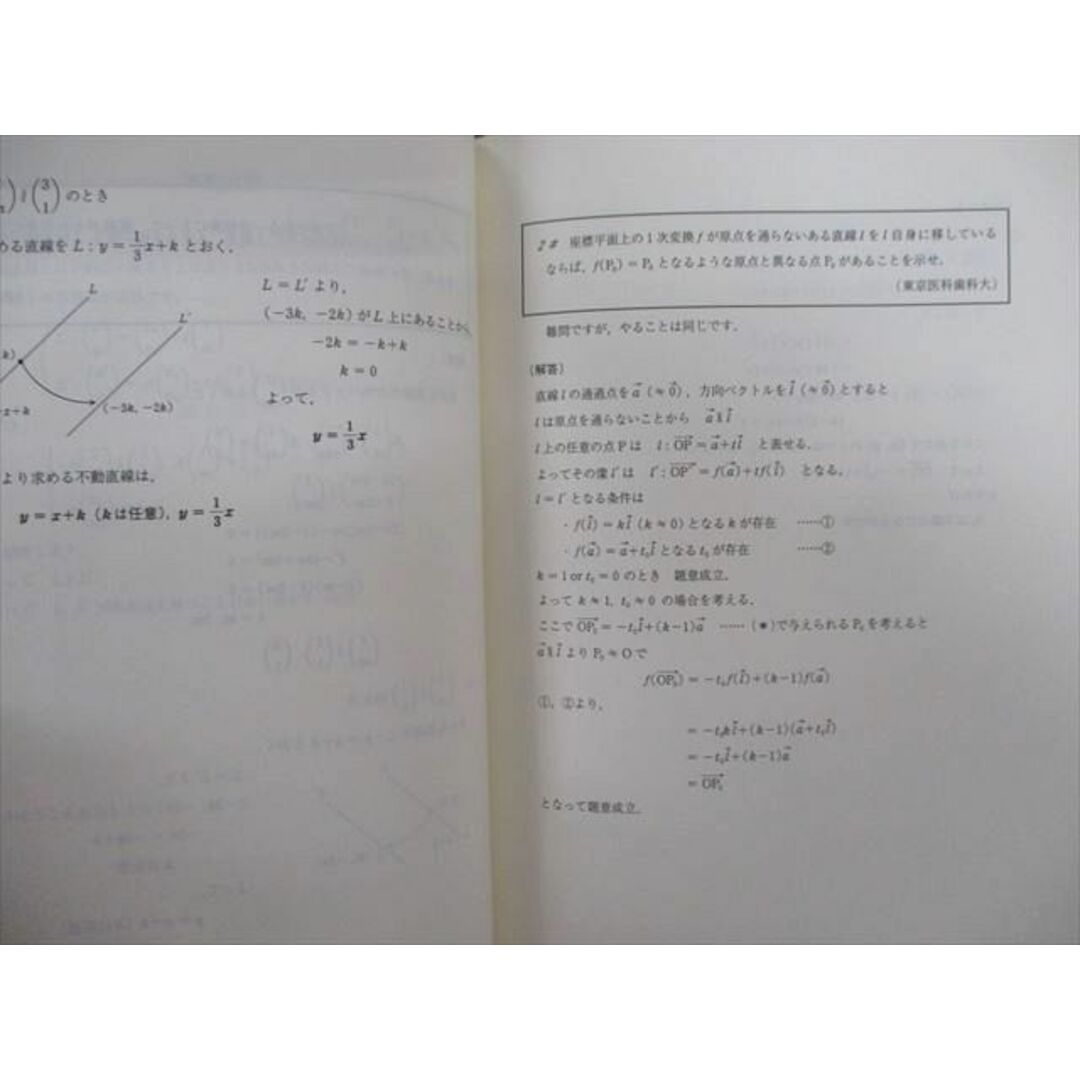 のとき
める直線を L : y = 1/3 x+k とおく.
L
L′
L = L′ より,
(−3k, −2k) が L 上にあることから
−2k = −k+k
k = 0
よって,
y = 1/3 x
k)
x+k
(−3k, −2k)
より求める不動直線は,
y = x+k (kは任意), y = 1/3 x
2# 座標平面上の1次変換 f が原点を通らないある直線 l を l 自身に移している
ならば, f(P₀) = P₀ となるような原点と異なる点 P₀ があることを示せ.
(東京医科歯科大)
難問ですが, やることは同じです.
(解答)
直線 l の通過点を a⃗ (≠ 0⃗), 方向ベクトルを l⃗ (≠ 0⃗) とすると
l は原点を通らないことから a⃗ ∦ l⃗
l 上の任意の点 P は l : OP⃗ = a⃗+tl⃗ と表せる.
よってその像 l′ は l′ : OP′⃗ = f(a⃗)+tf(l⃗) となる.
l = l′ となる条件は
・f(l⃗) = kl⃗ (k ≠ 0) となる k が存在 ……①
・f(a⃗) = a⃗+t₀l⃗ となる t₀ が存在 ……②
k = 1 or t₀ = 0 のとき 題意成立.
よって k ≠ 1, t₀ ≠ 0 の場合を考える.
ここで OP₀⃗ = −t₀l⃗+(k−1)a⃗ ……(*) で与えられる P₀ を考えると
a⃗ ∦ l⃗ より P₀ ≠ O で
f(OP₀⃗) = −t₀f(l⃗)+(k−1)f(a⃗)
①, ②より,
= −t₀kl⃗+(k−1)(a⃗+t₀l⃗)
= −t₀l⃗+(k−1)a⃗
= OP₀⃗
となって題意成立.